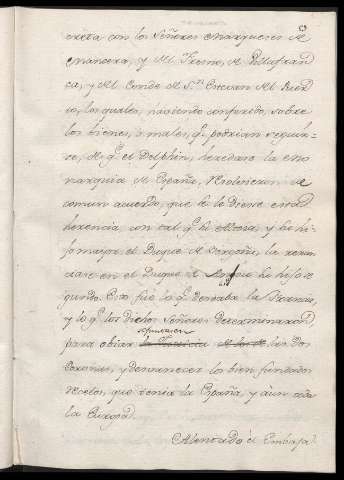 creta con los Señores Marqueses de
Mancera, y del Fresno, de Villafran
ca, y del Conde de S.n Estevan del Puer
to, los quales, haciendo conferido, sobre
los bienes, ò males, q.e podrian seguir
se, de q.e el Delphin, heredase la Mo
narquia de España, resolvieron de
comun acuerdo, que se le diese esta
herencia, con tal q.e èl
el Duque de Borgoña, la renun
ciase en el Duque de Anjou su hijo se
gundo. Esto fuè lo q.e deseaba la Francia,
y lo q.e los dichos Señores determinaron,
para obiar las dos
Coronas, y desvanecer los bien fundados
recelos, que tenia la España, y aun toda
la Europa.
Alentado el Embaja